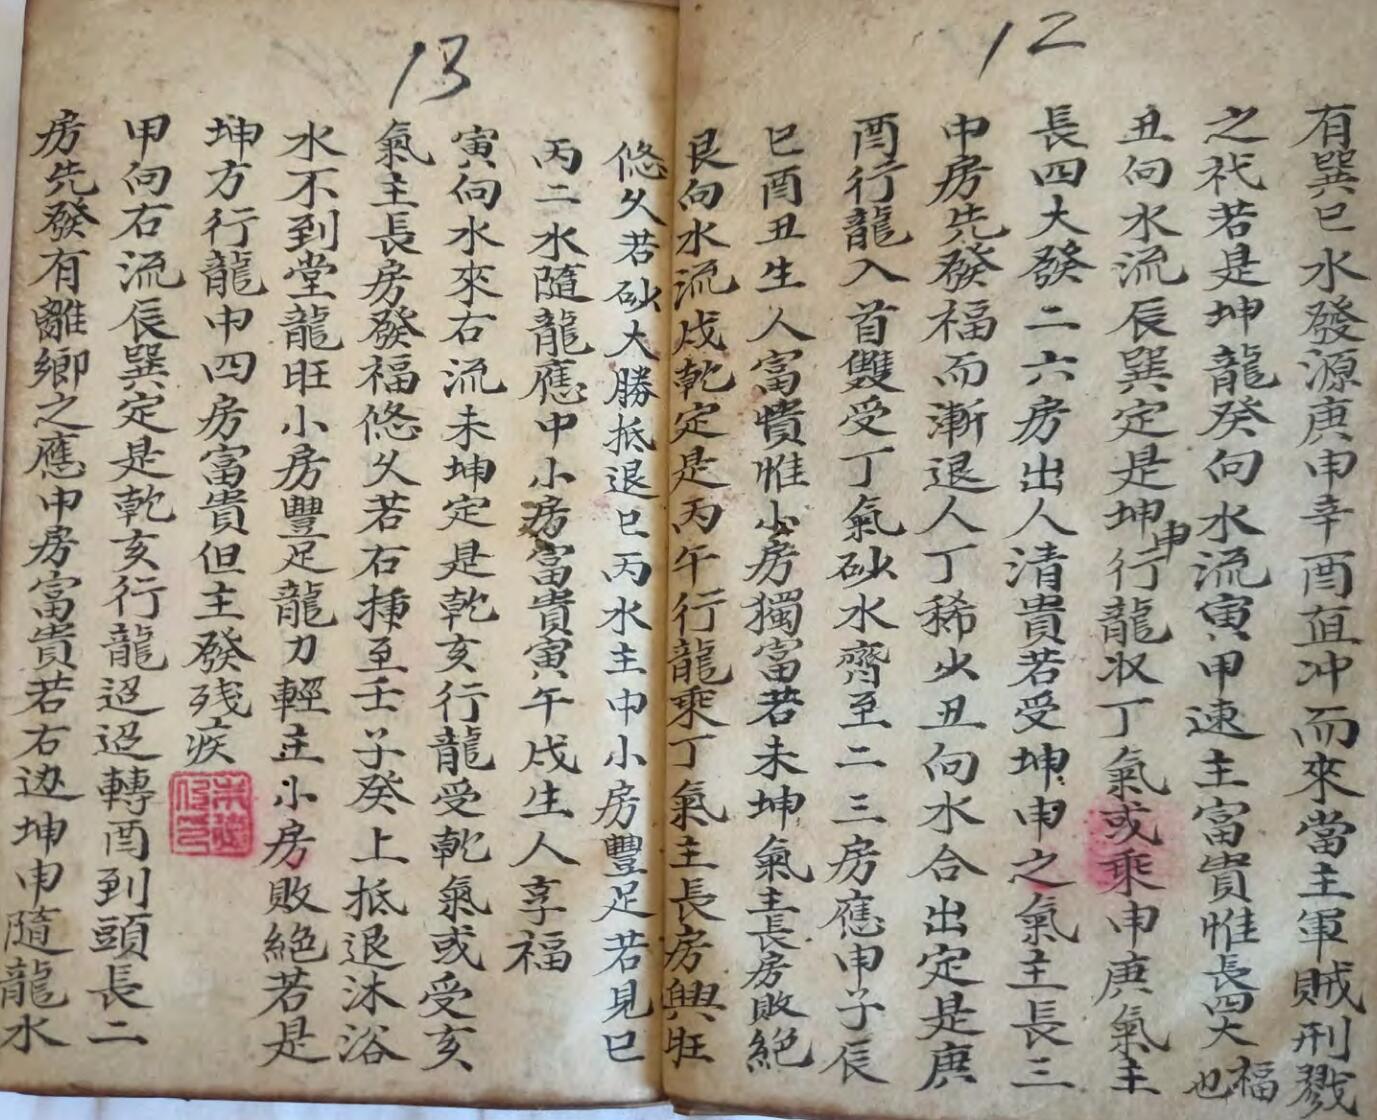 12
有巽巳水發源庚申辛酉直冲而來當主軍賊刑戮
之祇若是坤龍癸向水流寅甲速主富貴惟長四大福也
丑向水流辰巽定是坤申行龍收丁氣或乘申庚氣主
長四大發二六房出人清貴若受坤申之氣主長三
中房先發福而漸退人丁稀少丑向水合出定是庚
酉行龍入首雙受丁氣砂水齊至二三房應申子辰
巳酉丑生人富貴惟小房獨富若未坤氣主長房敗絕
艮向水流戌乾定是丙午行龍乘丁氣主長房興旺
13
悠久若砂大勝抵退巳丙水主中小房豐足若見巳
丙二水隨龍應中小房富貴寅午戌生人享福
寅向水來右流未坤定是乾亥行龍受乾氣或受亥
氣主長房發福悠久若右揷至壬子癸上抵退沐浴
水不到堂龍旺小房豐足龍力輕主小房敗絕若是
坤方行龍中四房富貴但主發残疾
甲向右流辰巽定是乾亥行龍迢迢轉酉到頭長二
房先發有離鄉之應中房富貴若右边坤申隨龍水